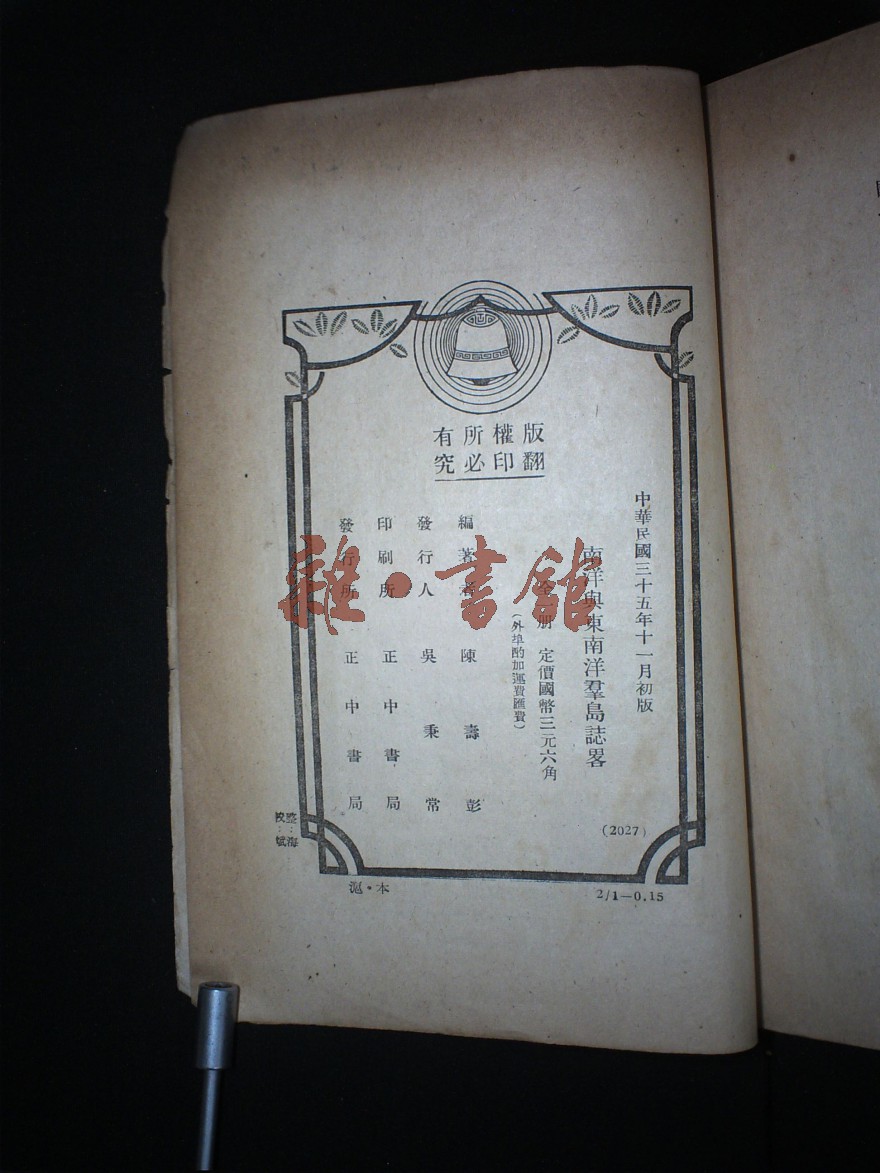 版權所有
翻印必究
中華民國三十五年十一月初版
南洋與東南洋羣島誌畧
全一册 定價國幣三元六角
(外埠酌加運費匯費)
編著者 陳壽彭
發行人 吳秉常
印刷所 正中書局
發行所 正中書局
(2027)
校整
::
斌海
滬·本
2/1—0.15
雜·書館